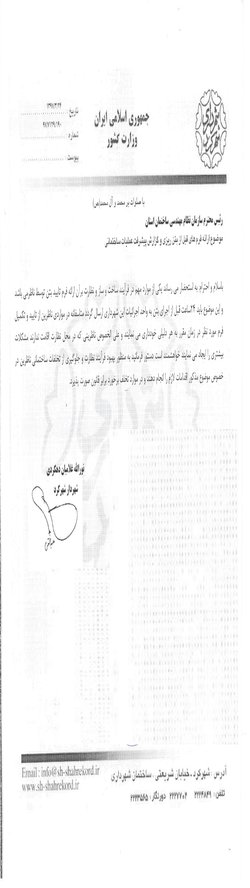 جمهوری اسلامی ایران
وزارت کشور
تاریخ
شماره
پیوست
شهرداری
شهرکرد
با صلوات بر محمد و آل محمد(ص)
رئیس محترم سازمان نظام مهندسی ساختمان استان
موضوع:ارائه فرم های قبل از بتن ریزی و گزارش پیشرفت عملیات ساختمانی
باسلام و احترام به استحضار می رساند یکی از موارد مهم در فرآیند ساخت و ساز و نظارت بر آن ارائه فرم تایید بتن توسط ناظرین می باشد
و این موضوع باید ۲۴ساعت قبل از اجرای بتن به واحد اجرائیات این شهرداری ارسال گردد متاسفانه در مواردی ناظرین از تایید و تکمیل
فرم مورد نظر در زمان مقرر به هر دلیلی خودداری می نمایند و علی الخصوص ناظرینی که در محل نظارت اقامت ندارند مشکلات
بیشتری را ایجاد می نمایند خواهشمند است دستور فرمائید به منظور بهبود فرآیند نظارت و جلوگیری از تخلفات ساختمانی ناظرین در
خصوص موضوع مذکور اقدامات لازم را انجام دهند و در موارد تخلف برخورد برابر قانون صورت پذیرد.
نورالله غلامیان دهکردی
شهردار شهرکرد
آدرس : شهرکرد - خیابان شریعتی - ساختمان شهرداری
تلفن: ۲۲۲۴۸۴۹ ۲۲۲۷۷۰۲ دورنگار: ۲۲۲۳۵۶۵
Email: info@sh-shahrekord.ir
www.sh-shahrekord.ir